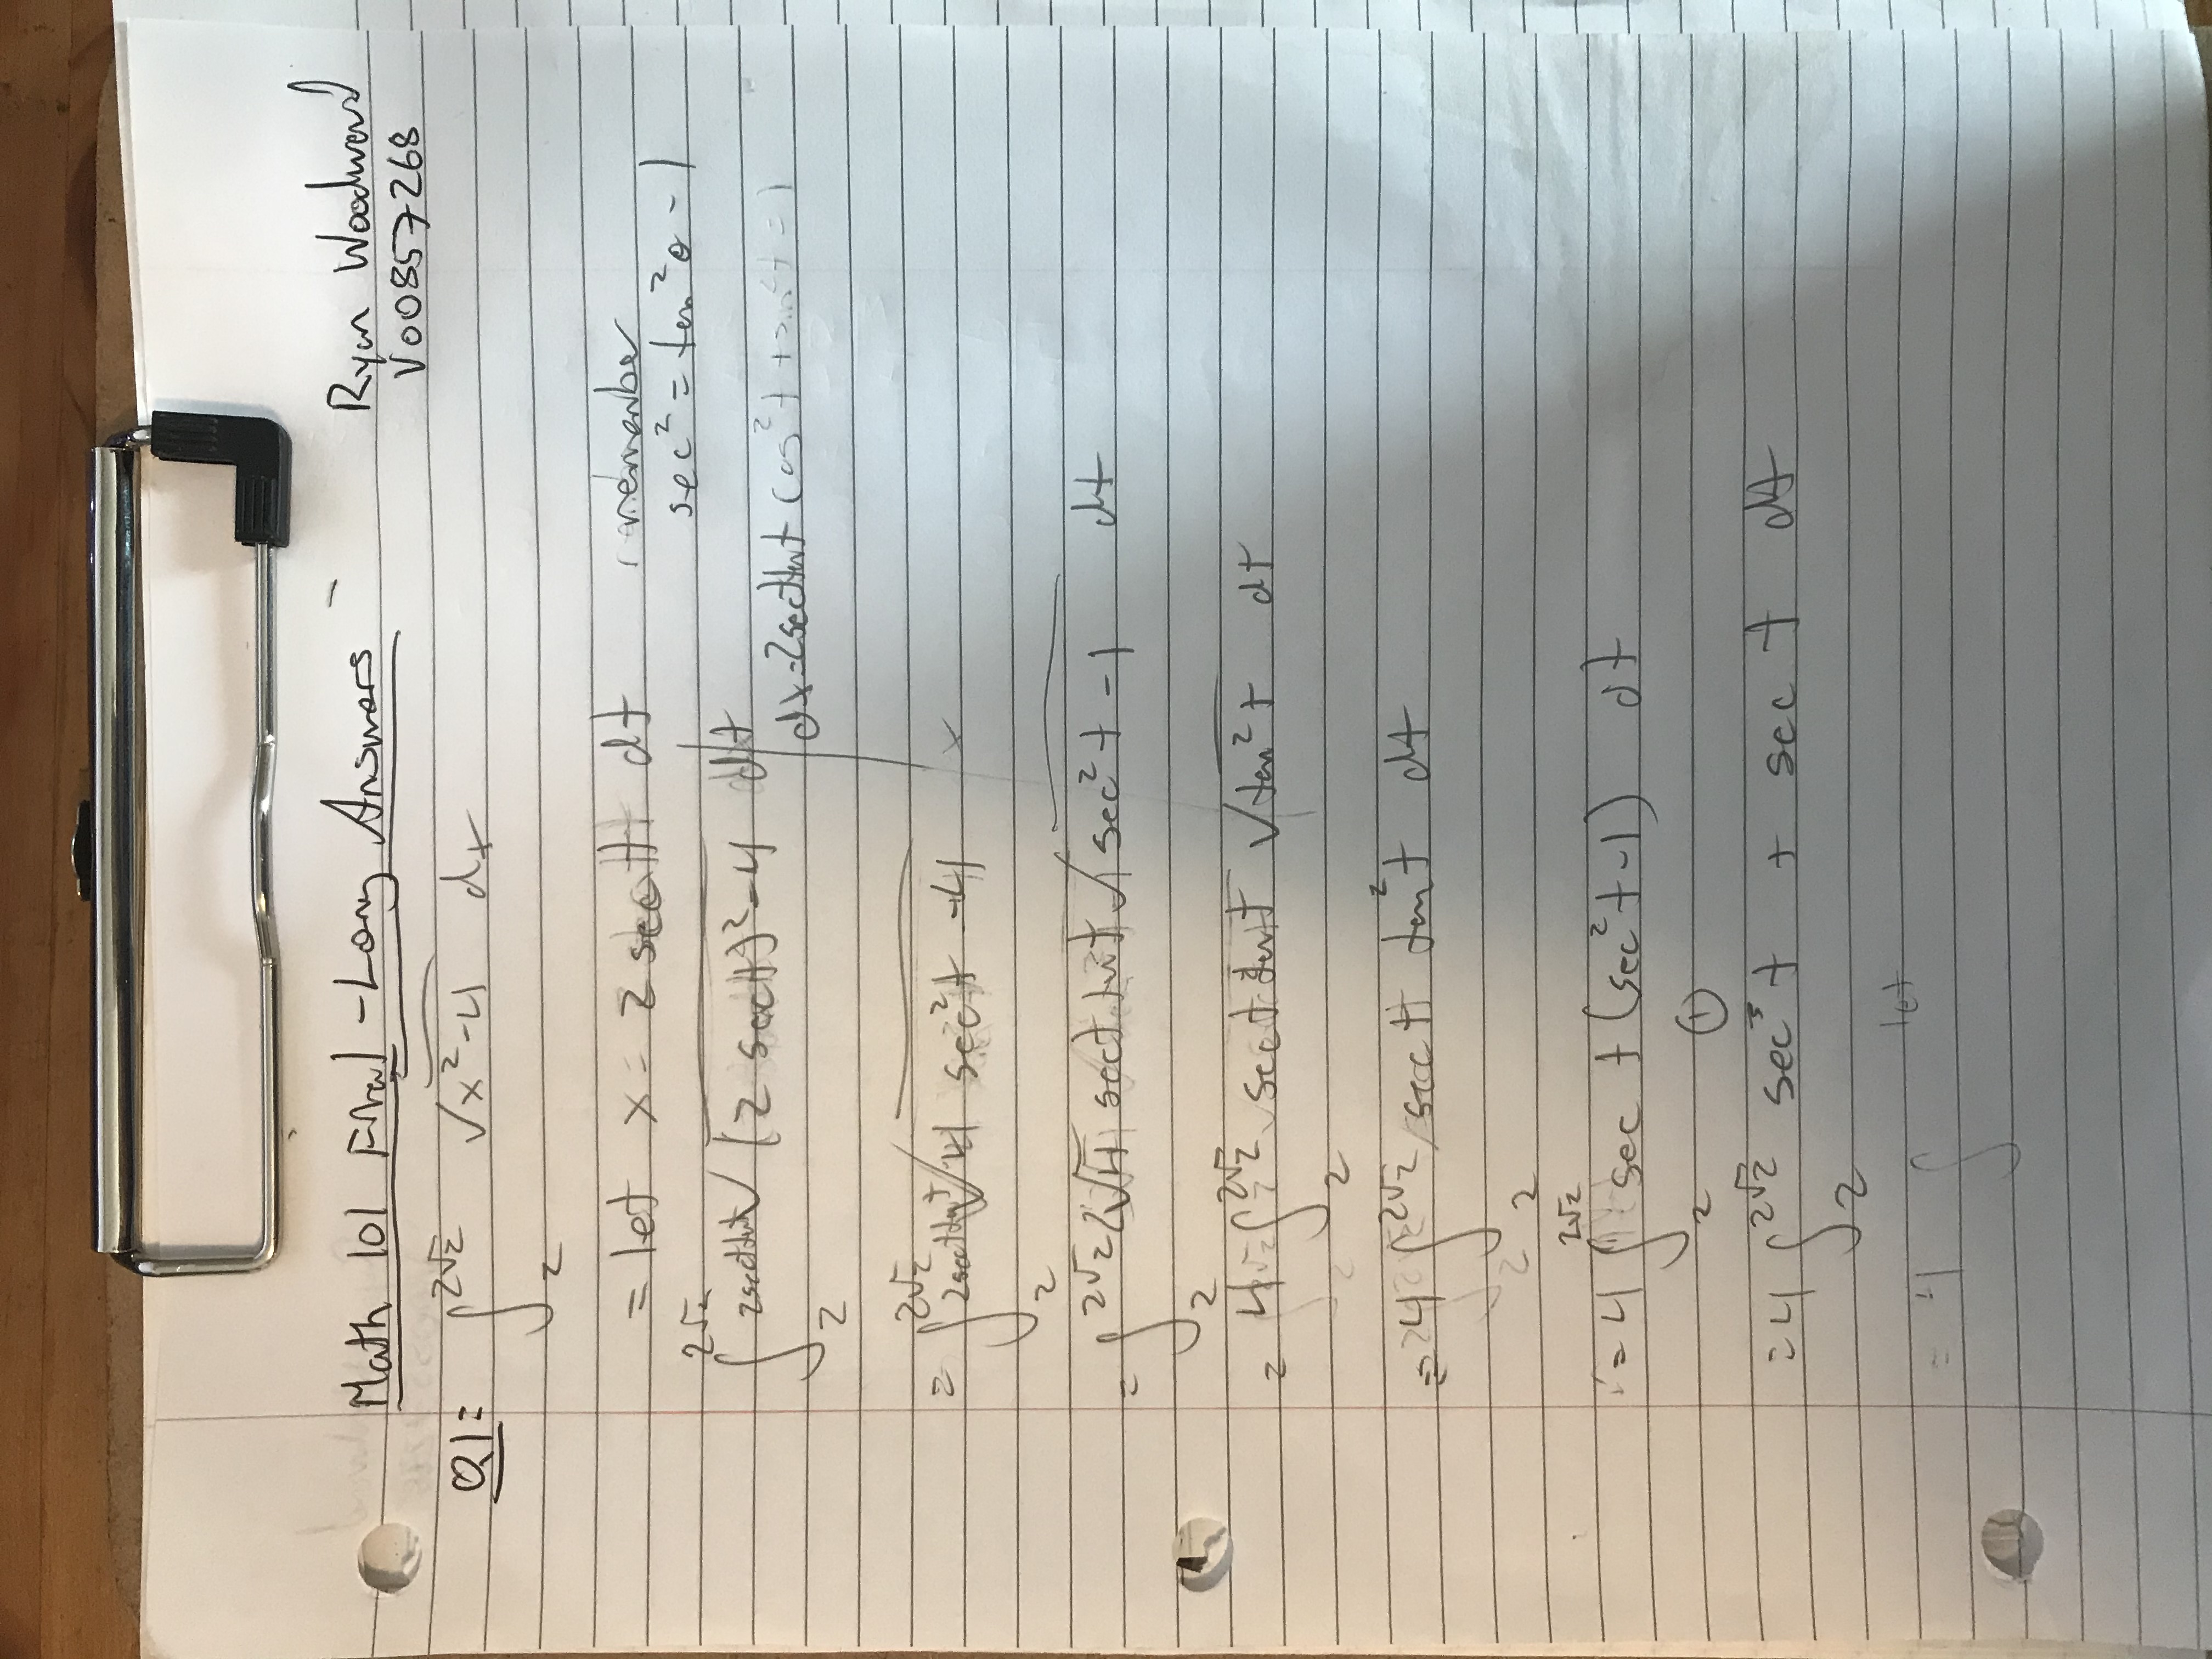 Math 101 Final - Long Answers
Ryan Woodward
V00857268
Q1: ∫_2^{2√2} √(x²-4) dx
= let x = 2 sec t dt
remember
sec² = tan²θ - 1
∫_2^{2√2} 2sect tant √([2 sect]²-4) dt
dx = 2sect tant cos²t + sin²t = 1
= ∫_2^{2√2} 2sect tant √(4 sec²t - 4)
= ∫_2^{2√2} 2√4 sect tant √(sec²t - 1) dt
= 4 ∫_2^{2√2} sect tant √(tan²t) dt
= 4 ∫_2^{2√2} sect tan²t dt
= 4 ∫_2^{2√2} sec t (sec²t - 1) dt
①
= 4 ∫_2^{2√2} sec³t + sec t dt
let
= 4 ∫